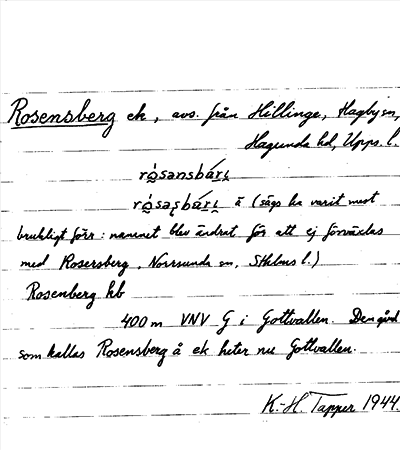 Rosensberg ek, avs. från Hillinge, Hagby sn,
Hagunda hd, Upps. l.
rósənsbári
rósasbári ä (sägs ha varit mest
brukligt förr: namnet blev ändrat för att ej förväxlas
med Rosersberg, Norrsunda sn, Sthlms l.)
Rosenberg hb
400 m VNV G i Gottvallen. Den gård
som kallas Rosensberg å ek heter nu Gottvallen.
K.-H. Tapper 1944.